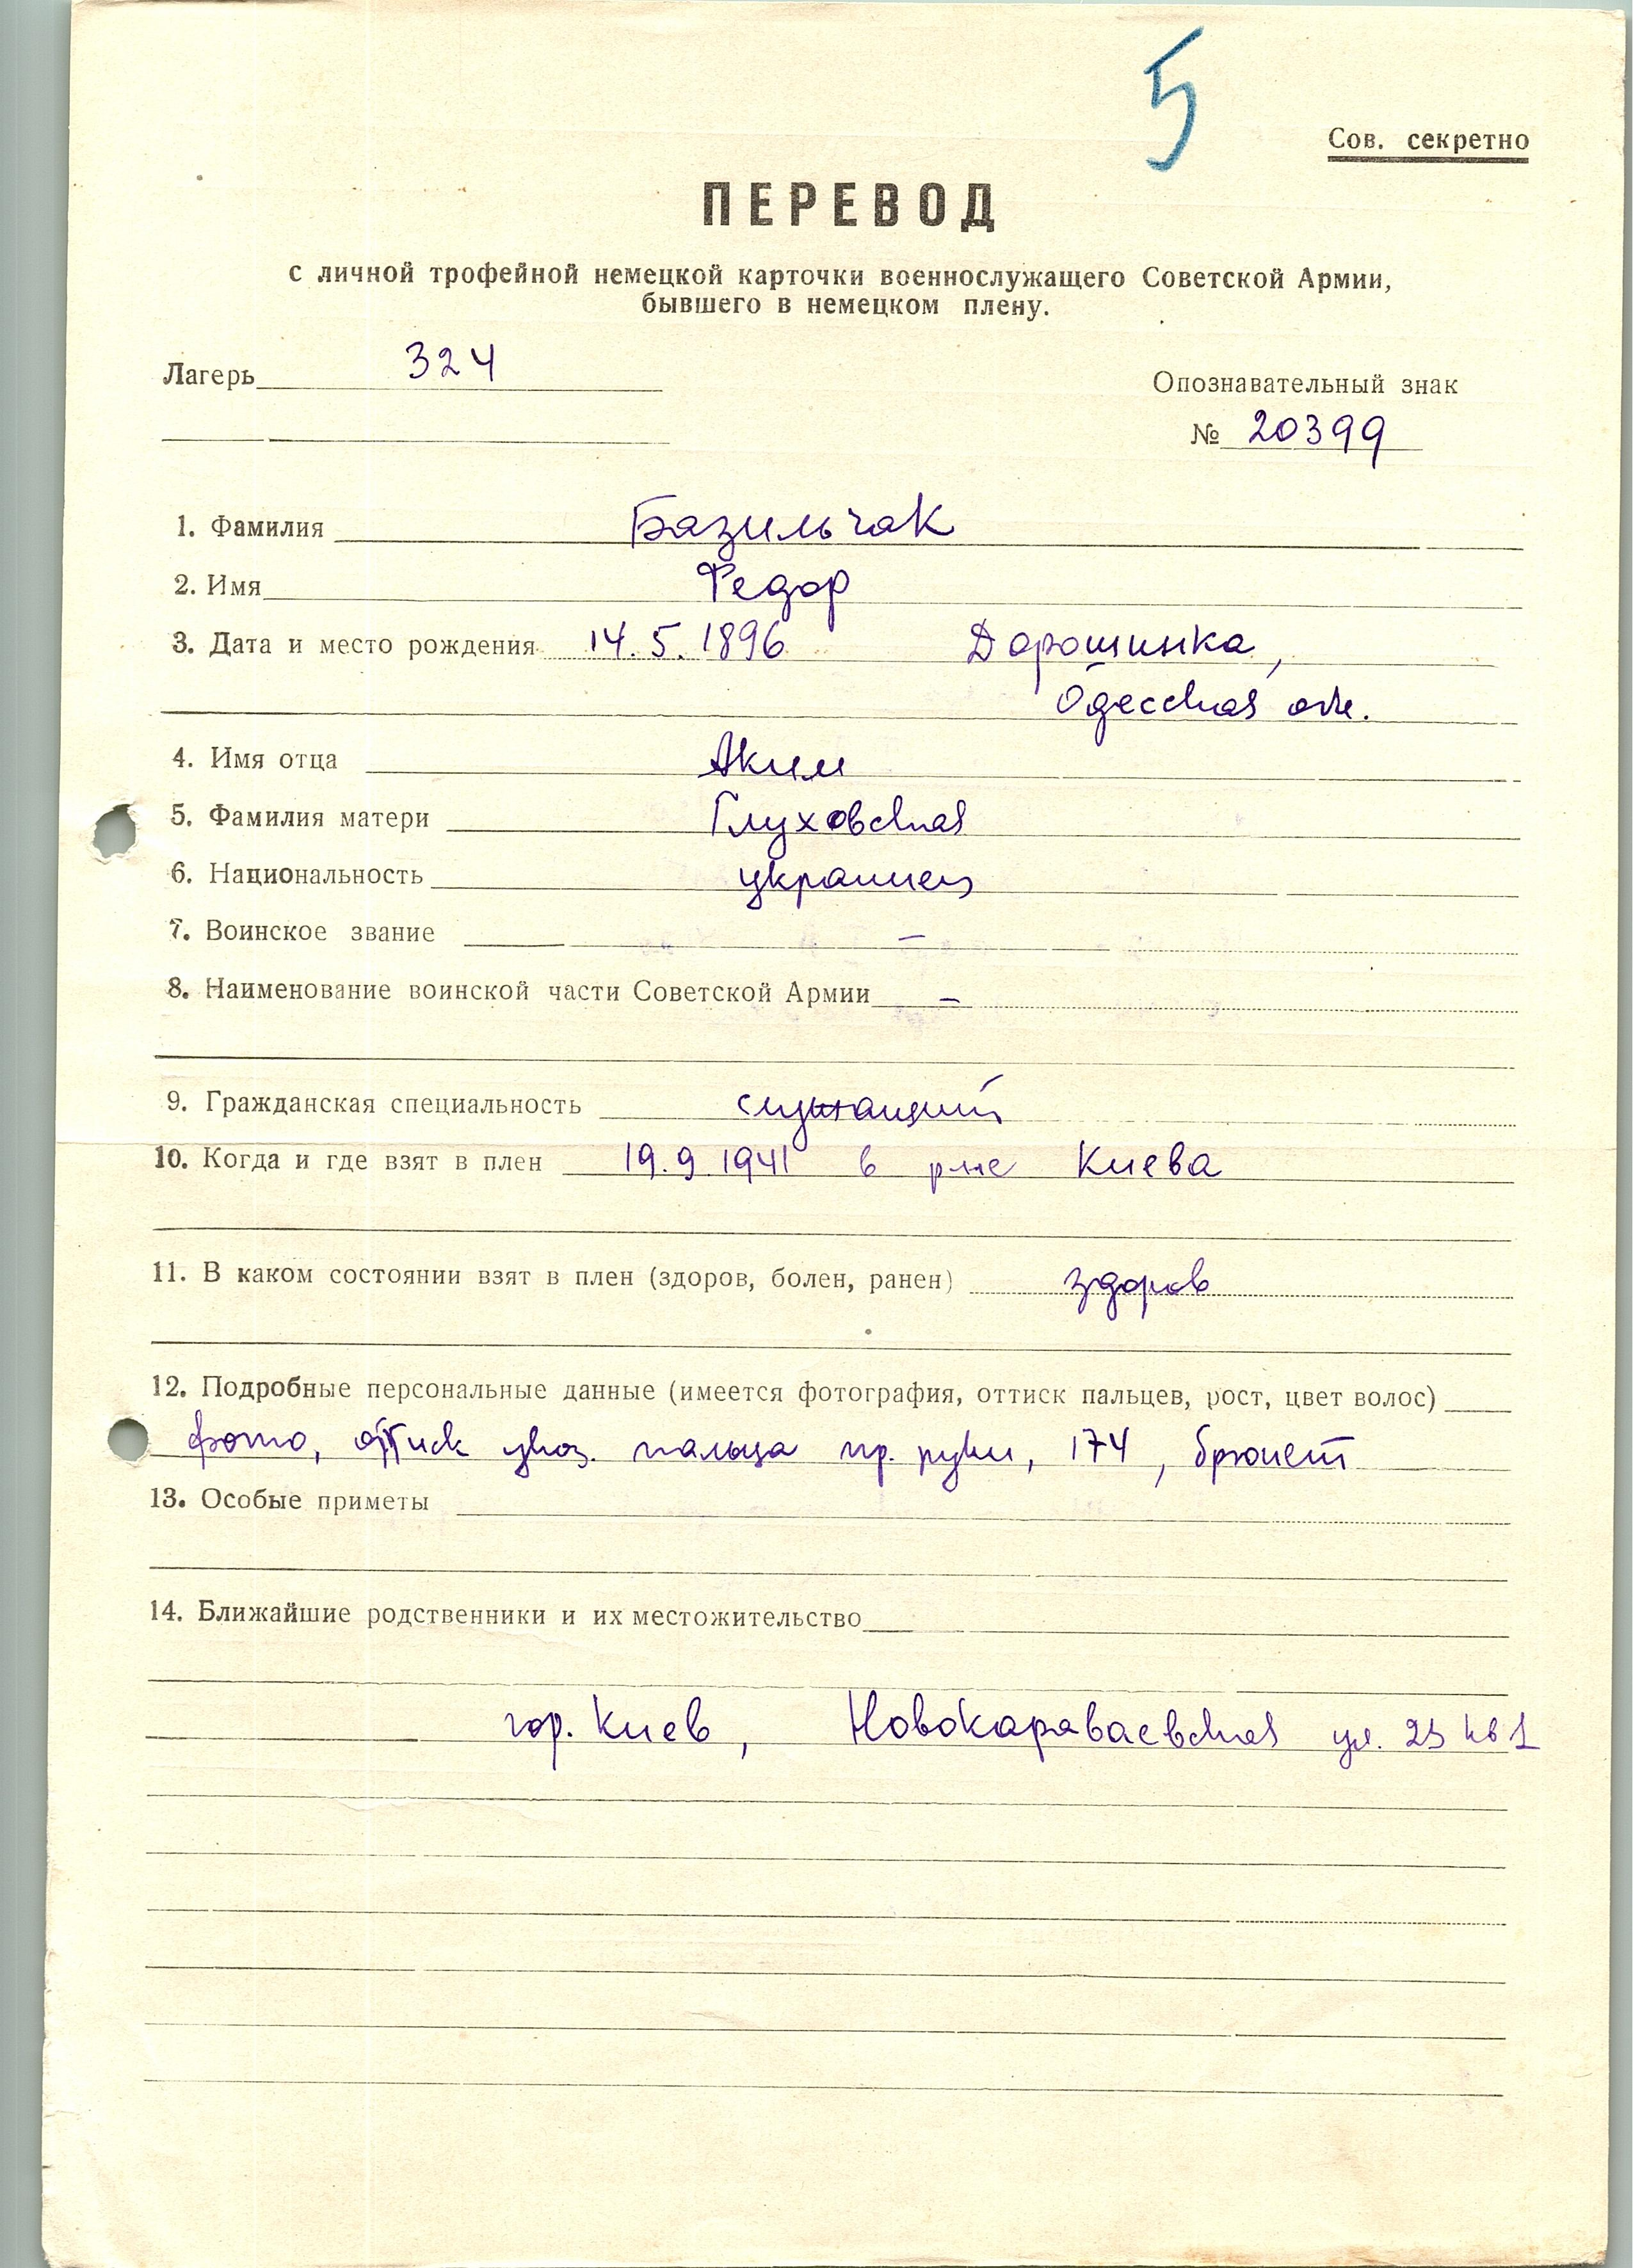 5
Сов. секретно
ПЕРЕВОД
с личной трофейной немецкой карточки военнослужащего Советской Армии,
бывшего в немецком плену.
Лагерь 324
Опознавательный знак
№ 20399
1. Фамилия Базильчак
2. Имя Федор
3. Дата и место рождения 14.5.1896 Дорошинка,
Одесская обл.
4. Имя отца Аким
5. Фамилия матери Глуховская
6. Национальность украинец
7. Воинское звание –
8. Наименование воинской части Советской Армии –
9. Гражданская специальность служащий
10. Когда и где взят в плен 19.9.1941 в р-не Киева
11. В каком состоянии взят в плен (здоров, болен, ранен) здоров
12. Подробные персональные данные (имеется фотография, оттиск пальцев, рост, цвет волос)
фото, оттиск указ. пальца пр. руки, 174, брюнет
13. Особые приметы
14. Ближайшие родственники и их местожительство
гор. Киев, Новокараваевская ул. кв 1